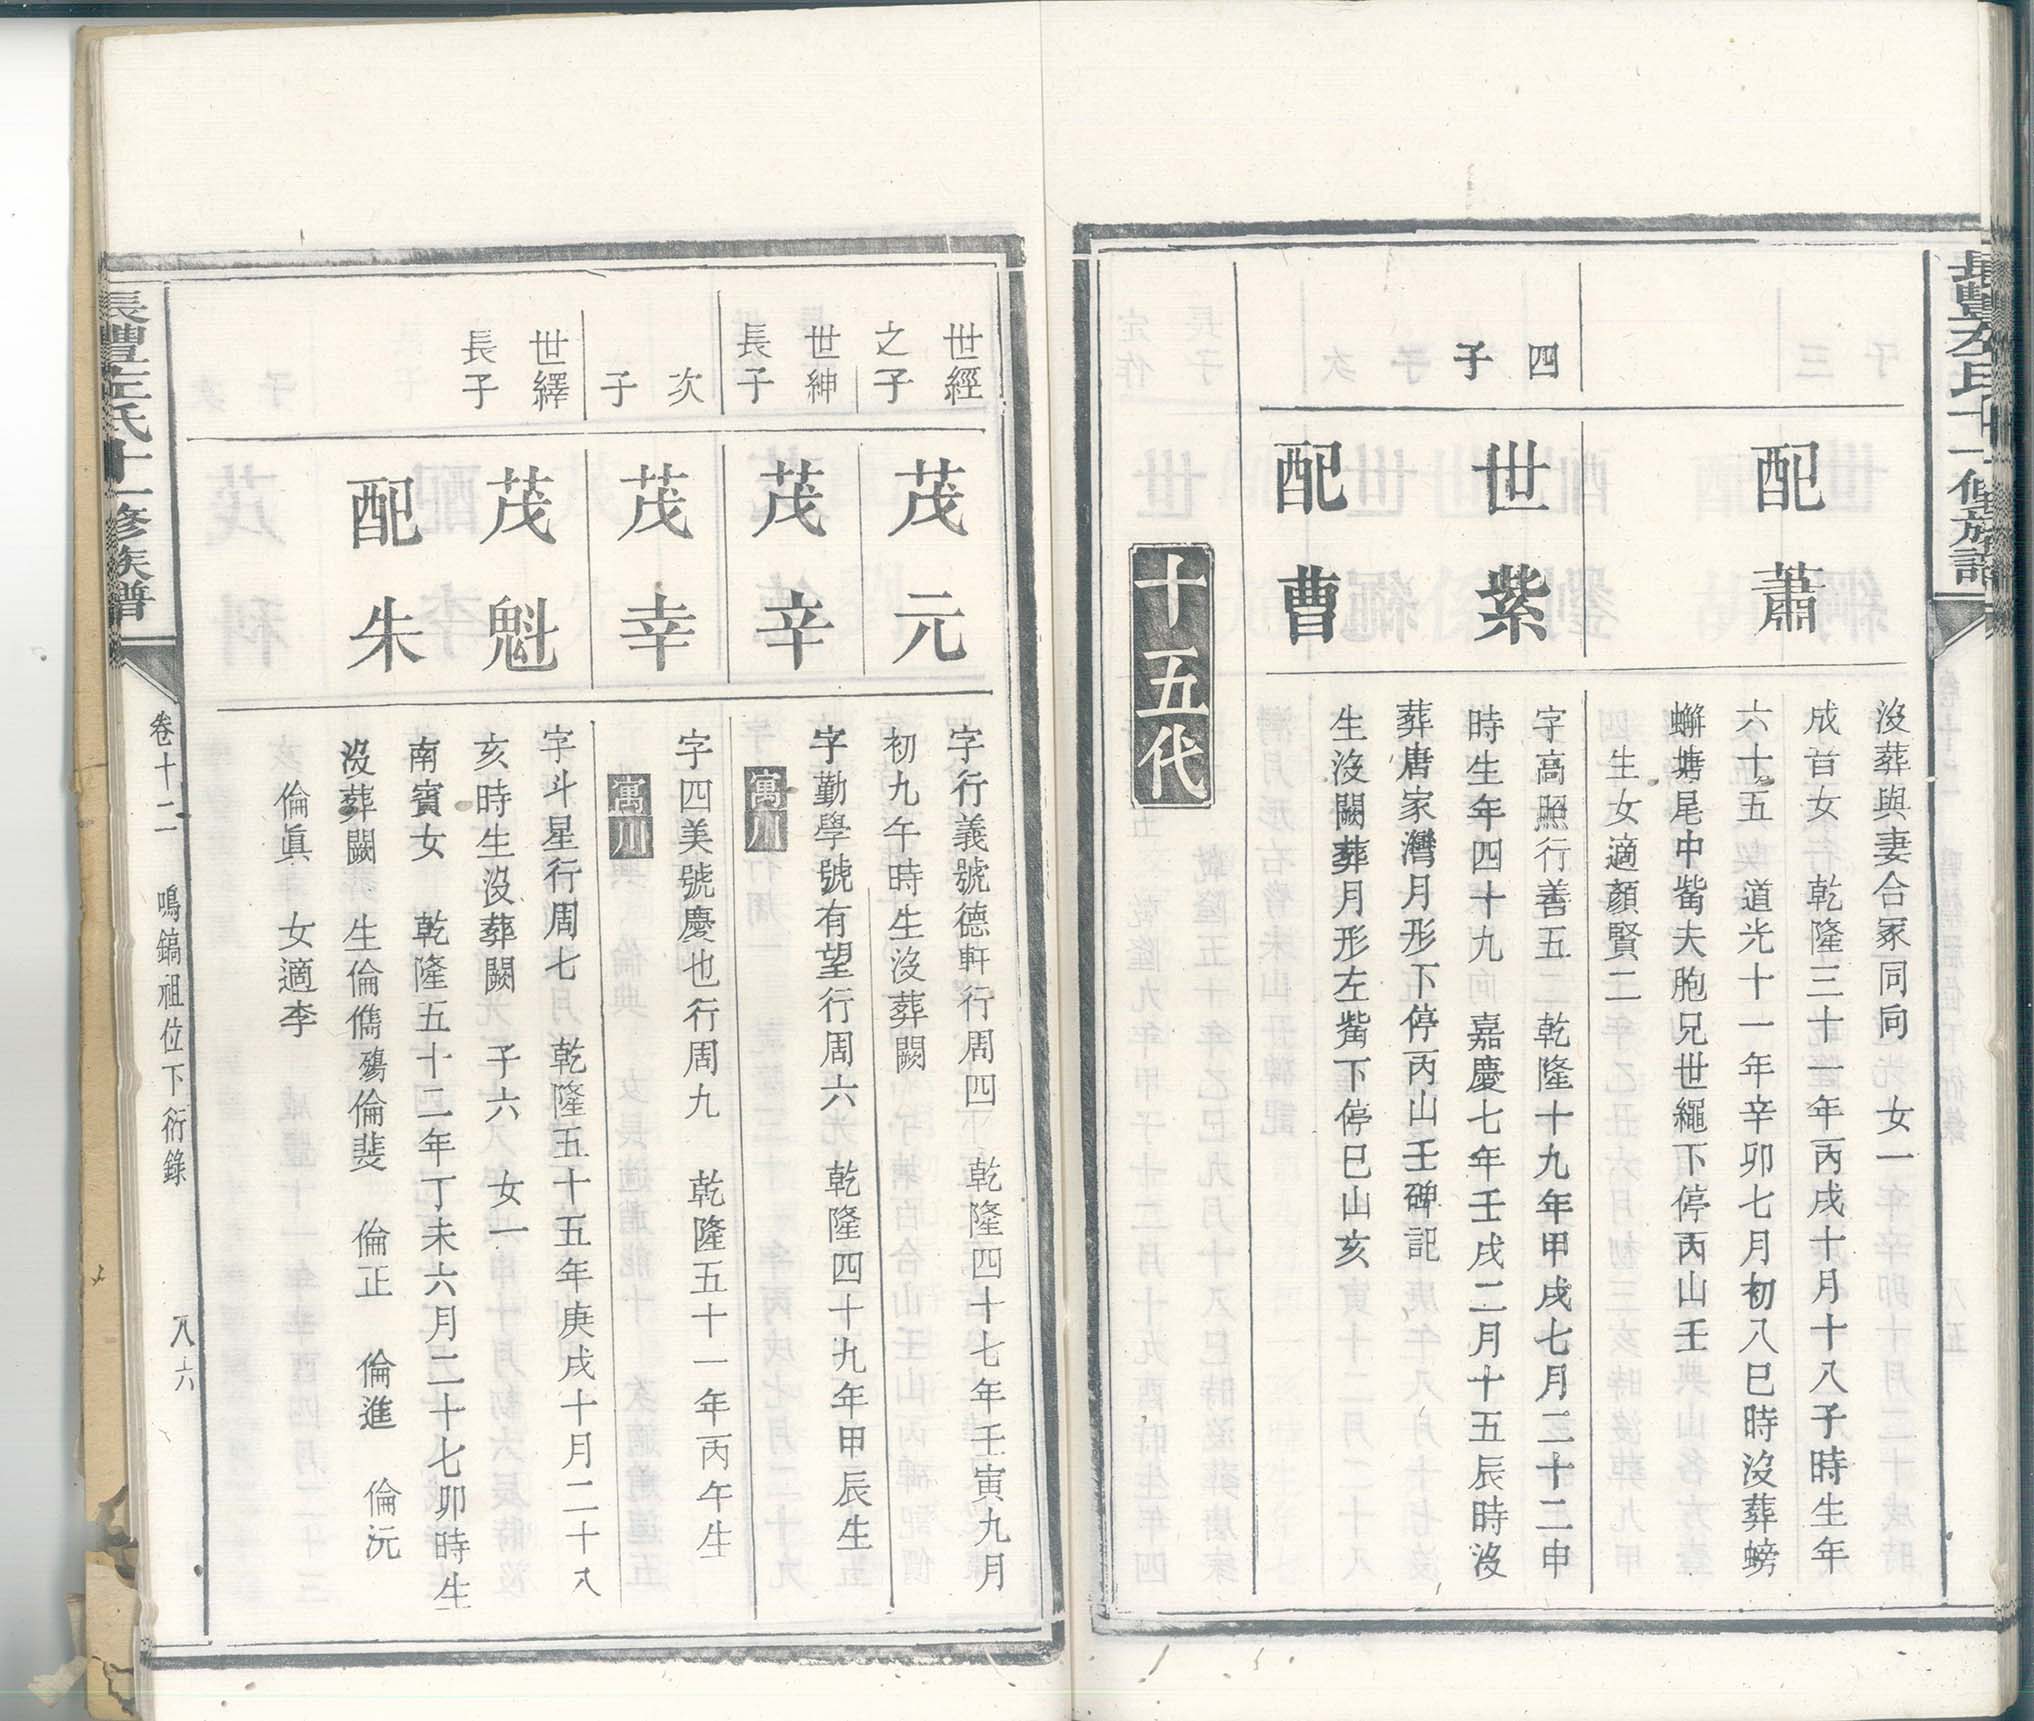 沒葬與妻合冢同向　女一
配蕭
成首女　乾隆三十一年丙戌十月十八子時生年
六十五　道光十一年辛卯七月初八巳時沒葬螃
蠏塘尾中觜夫胞兄世繩下停丙山壬
生女適顏賢二
四子
世紫
字高照行善五　乾隆十九年甲戌七月二十二申
時生年四十九　嘉慶七年壬戌二月十五辰時沒
葬唐家灣月形下停丙山壬碑記
配曹
生沒闕葬月形左觜下停巳山亥
十五代
世經之子
茂元
字行義號德軒行周四　乾隆四十七年壬寅九月
初九午時生沒葬闕
世紳長子
茂辛
字勤學號有望行周六　乾隆四十九年甲辰生
寓川
次子
茂幸
字四美號慶也行周九　乾隆五十一年丙午生
寓川
世繹長子
茂魁
字斗星行周七　乾隆五十五年庚戌十月二十八
亥時生沒葬闕　子六　女一
配朱
南賓女　乾隆五十二年丁未六月二十七卯時生
沒葬闕　生倫儁殤倫斐　倫正　倫進　倫沅
倫眞　女適李
長豐左氏十一修族譜
卷十二　鳴鎬祖位下衍錄　八六